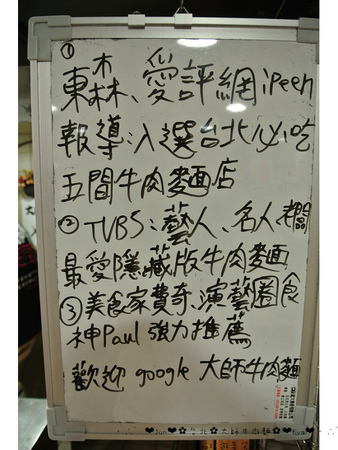 ①
東森、愛評網iPeen
報導:入選台北必吃
五間牛肉麵店
②TVBS:藝人、名人、闆
最愛隱藏版牛肉麵
③美食家費奇、演藝圈食
神Paul強力推薦
歡迎 google 大師牛肉麵
台北 大師牛肉麵